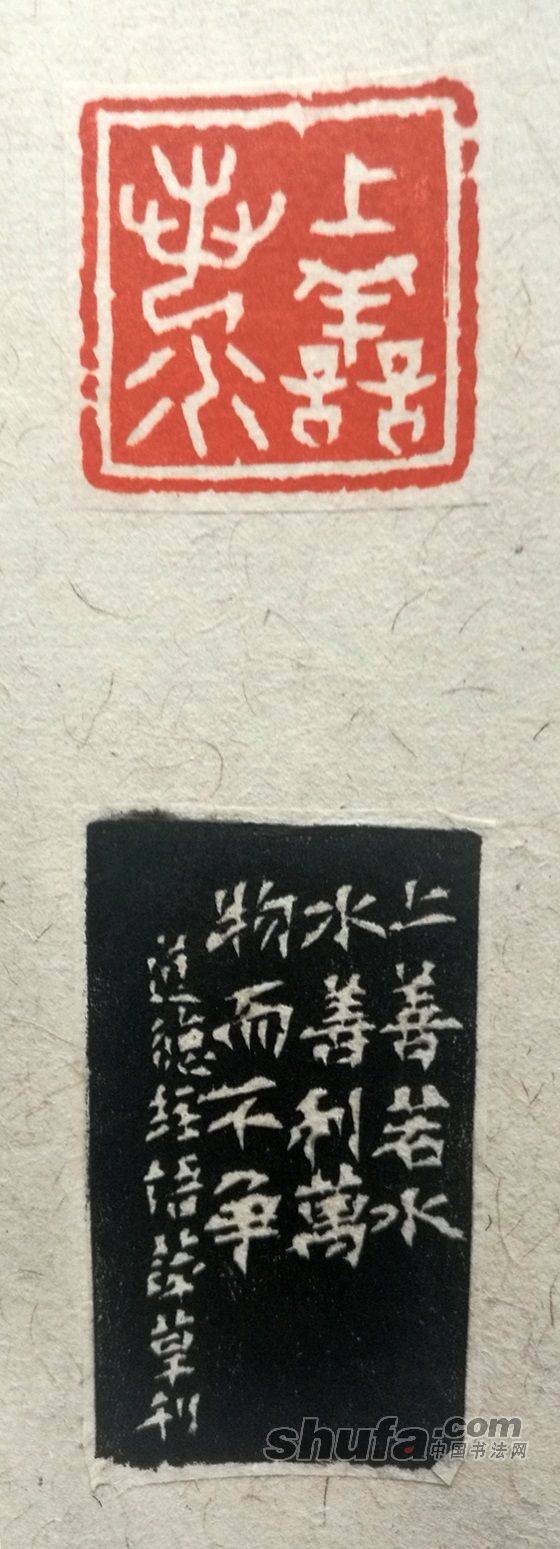 上善
若水
上善若水
水善利萬
物而不争
道德經語草刊
shufa.com
中国书法网